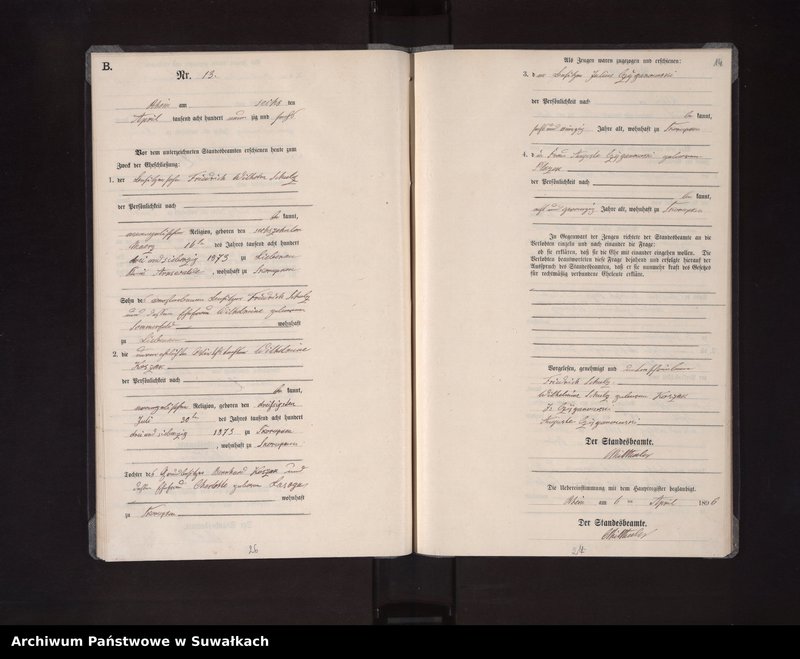 B.
Nr. 13.
Rhein am sechs ten
April tausend acht hundert neun zig und
Vor dem unterzeichneten Standesbeamten erschienen heute zum
Zweck der Eheschließung:
1. der Besitzersohn Friedrich Wilhelm Schulz
der Persönlichkeit nach
be kannt,
evangelischer Religion, geboren den sechszehnten
Maerz 16ten des Jahres tausend acht hundert
drei und siebenzig 1873 zu
Kreis , wohnhaft zu Skorupken
Sohn des verstorbenen Besitzers Friedrich Schulz
und dessen Ehefrau Wilhelmine geborenen
Sommerfeld wohnhaft
zu
2. die unverehelichte Wilhelmine
Koszak
der Persönlichkeit nach
be kannt,
evangelischer Religion, geboren den dreißigsten
Juli 30ten des Jahres tausend acht hundert
drei und siebenzig 1873 zu Skorupken
, wohnhaft zu Skorupken
Tochter des Grundbesitzers Bernhard Koszak und
dessen Ehefrau Charlotte geborene
wohnhaft
zu Skorupken
26
Als Zeugen waren zugezogen und erschienen:
3. der Besitzer Julius Czyganowski
der Persönlichkeit nach
be kannt,
Jahre alt, wohnhaft zu Skorupken
4. die Frau Auguste Czyganowski geborene
der Persönlichkeit nach
be kannt,
acht und zwanzig Jahre alt, wohnhaft zu Skorupken
In Gegenwart der Zeugen richtete der Standesbeamte an die
Verlobten einzeln und nach einander die Frage:
ob sie erklären, daß sie die Ehe mit einander eingehen wollen. Die
Verlobten beantworteten diese Frage bejahend und erfolgte hierauf der
Ausspruch des Standesbeamten, daß er sie nunmehr kraft des Gesetzes
für rechtmäßig verbundene Eheleute erkläre.
Vorgelesen, genehmigt und unterschrieben
Friedrich Schulz
Wilhelmine Schulz geborene Koszak
J. Czyganowski
Auguste Czyganowski
Der Standesbeamte.
Die Uebereinstimmung mit dem Hauptregister beglaubigt.
Rhein am 6 ten April 1896
Der Standesbeamte.
27
Archiwum Państwowe w Suwałkach